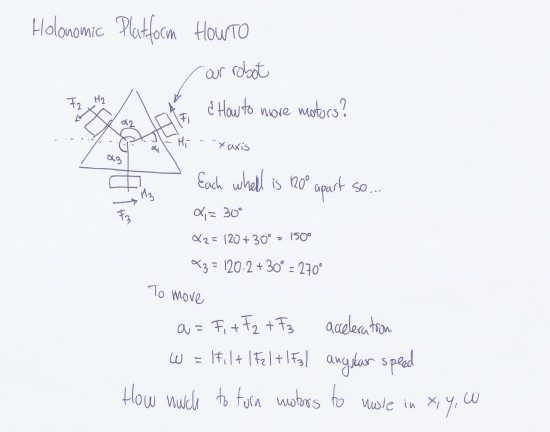 Holonomic Platform HowTO
our robot
F2 M2 F1
¿How to move motors?
α2 α1 M1
x axis
α3
M3
F3
Each whell is 120° apart so...
α1 = 30°
α2 = 120 + 30° = 150°
α3 = 120·2 + 30° = 270°
To move
a = F1 + F2 + F3 acceleration
ω = |F1| + |F2| + |F3| angular speed
How much to turn motors to move in x, y, ω